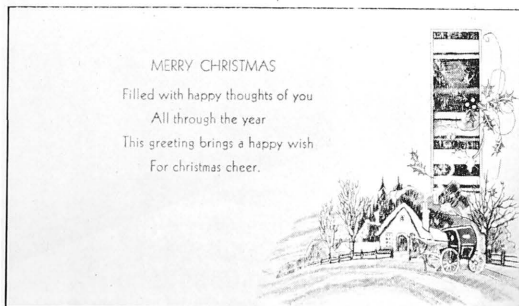 MERRY CHRISTMAS
Filled with happy thoughts of you
All through the year
This greeting brings a happy wish
For christmas cheer.